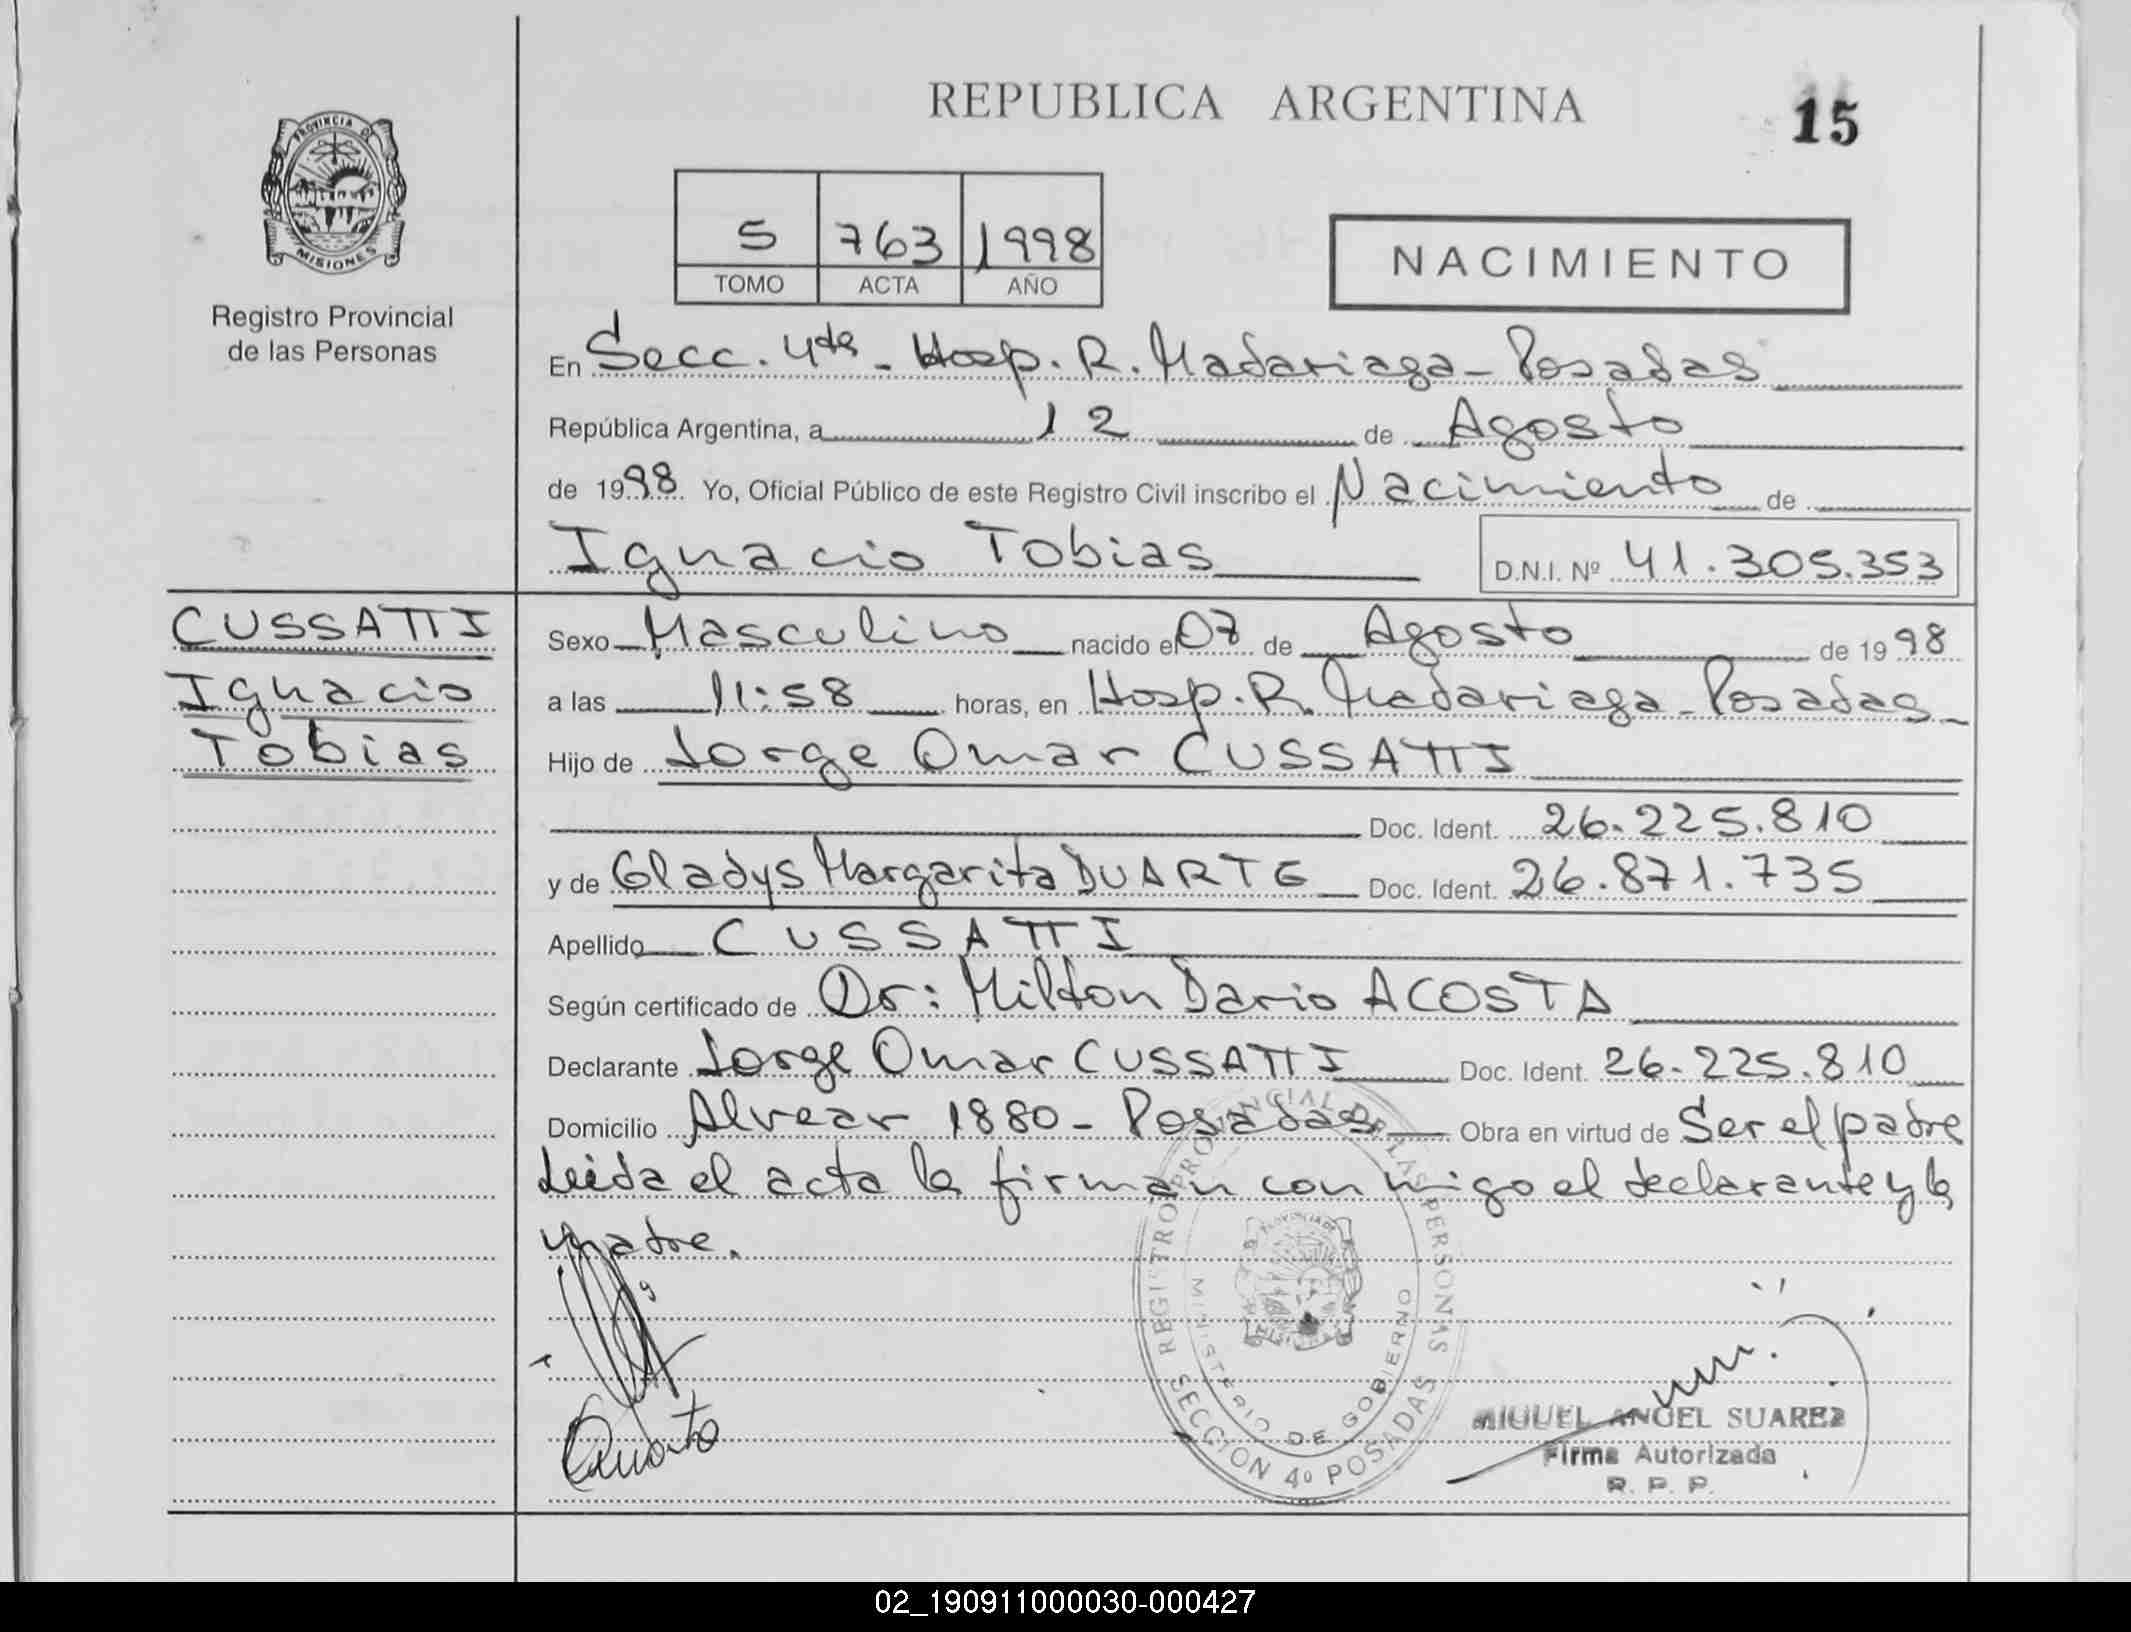 REPUBLICA ARGENTINA
15
PROVINCIA DE
MISIONES
Registro Provincial
de las Personas
5 763 1998
TOMO ACTA AÑO
NACIMIENTO
En Secc. 4ta - Hosp. R. Madariaga - Posadas
República Argentina, a 12 de Agosto
de 1998 Yo, Oficial Público de este Registro Civil inscribo el Nacimiento de
Ignacio Tobias D.N.I. Nº 41.305.353
CUSSATTI
Ignacio
Tobias
Sexo Masculino nacido el 07 de Agosto de 1998
a las 11:58 horas, en Hosp. R. Madariaga - Posadas -
Hijo de Jorge Omar CUSSATTI
Doc. Ident. 26.225.810
y de Gladys Margarita DUARTE Doc. Ident. 26.871.735
Apellido CUSSATTI
Según certificado de Dr: Milton Dario ACOSTA
Declarante Jorge Omar CUSSATTI Doc. Ident. 26.225.810
Domicilio Alvear 1880 - Posadas Obra en virtud de Ser el padre
Leida el acta la firman conmigo el declarante y la
madre.
REGISTRO PROVINCIAL DE LAS PERSONAS
MINISTERIO DE GOBIERNO
SECCION 4º POSADAS
MIGUEL ANGEL SUAREZ
Firma Autorizada
R. P. P.
02_190911000030-000427